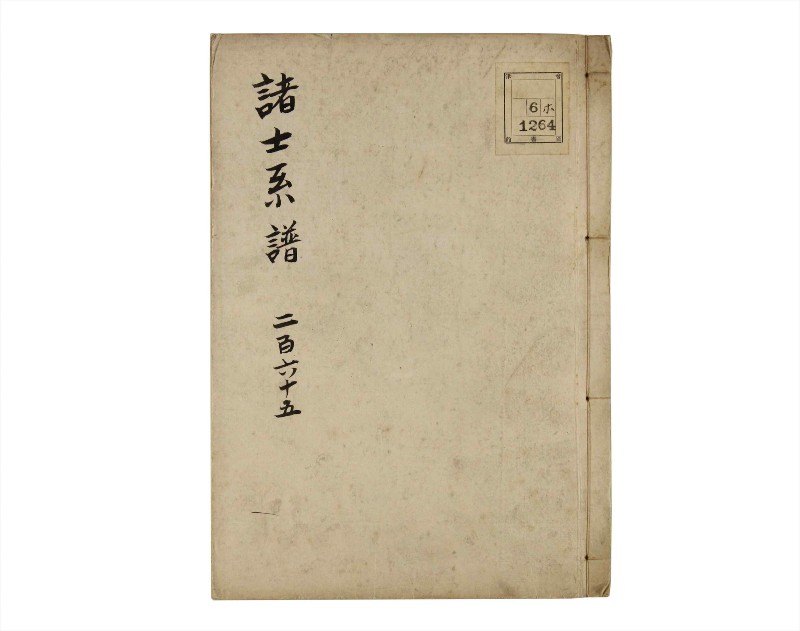 諸士系譜 二百六十五
6 ホ
1264